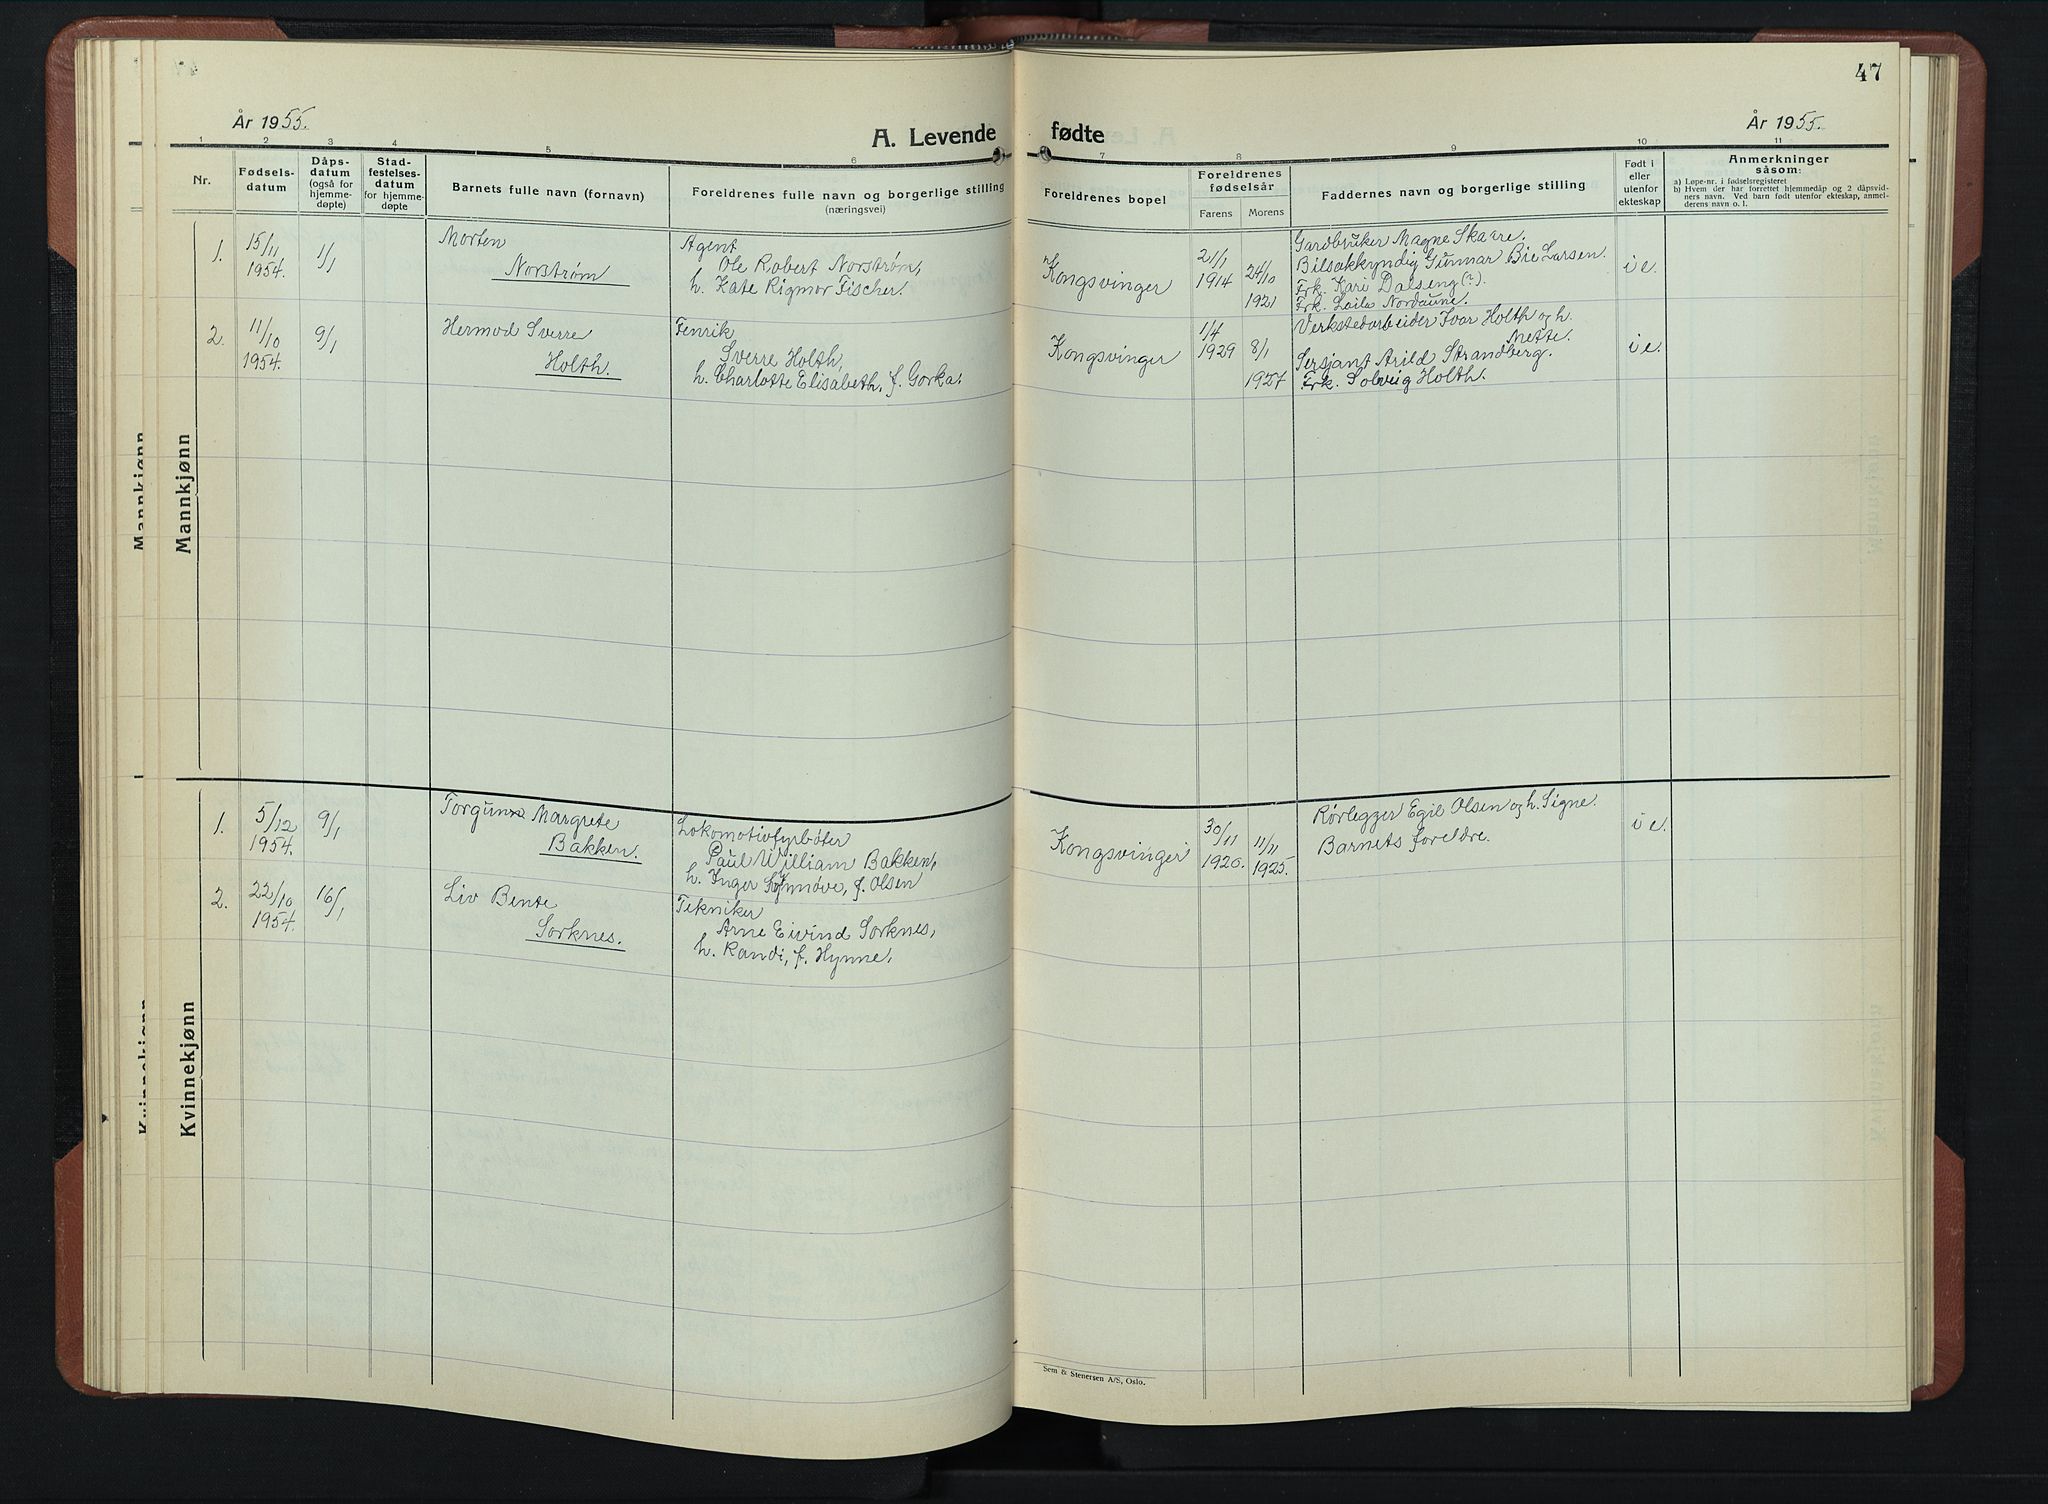 47
År 1955.
A. Levende fødte
År 1955.
1 2 3 4 5 6 7 8 9 10 11
Nr.
Fødsels-
datum
Dåps-
datum
(også for
hjemme-
døpte)
Stad-
festelses-
datum
for hjemme-
døpte
Barnets fulle navn (fornavn)
Foreldrenes fulle navn og borgerlige stilling
(næringsvei)
Foreldrenes bopel
Foreldrenes
fødselsår
Farens Morens
Faddernes navn og borgerlige stilling
Født i
eller
utenfor
ekteskap
Anmerkninger
såsom:
a) Løpe-nr. i fødselsregisteret
b) Hvem der har forrettet hjemmedåp og 2 dåpsvid-
ners navn. Ved barn født utenfor ekteskap, anmel-
derens navn o. l.
Mannkjønn
Mannkjønn
1.
15/11
1954.
1/1
Morten
Norstrøm
Agent
Ole Robert Norstrøm,
h. Kate Rigmor Fischer.
Kongsvinger
21/1
1914
24/10
1921
Gardbruker Magne Skaare.
Bilsakkyndig Gunnar Bie Larsen.
Frk. Kari Dalseng (?).
Frk. Laila Nordaune.
i e.
2.
11/10
1954.
9/1
Hermod Sverre
Holth.
Fenrik
Sverre Holth,
h. Charlotte Elisabeth, f. Gorka.
Kongsvinger
1/4
1929
8/1
1927
Verkstedarbeider Ivar Holth og h.
Mette.
Sersjant Arild Strandberg.
Frk. Solveig Holth.
i e.
Kvinnekjønn
Kvinnekjønn
1.
5/12
1954.
9/1
Torgunn Margrete
Bakken.
Lokomotivfyrbøter
Paul William Bakken,
h. Inger Synnøve, f. Olsen
Kongsvinger
30/11
1920.
11/11
1925.
Rørlegger Egil Olsen og h. Signe.
Barnets foreldre.
i e.
2.
22/10
1954.
16/1
Liv Bente
Sorknes.
Tekniker
Arne Eivind Sorknes,
h. Randi, f. Hynne,
Sem & Stenersen A/S, Oslo.